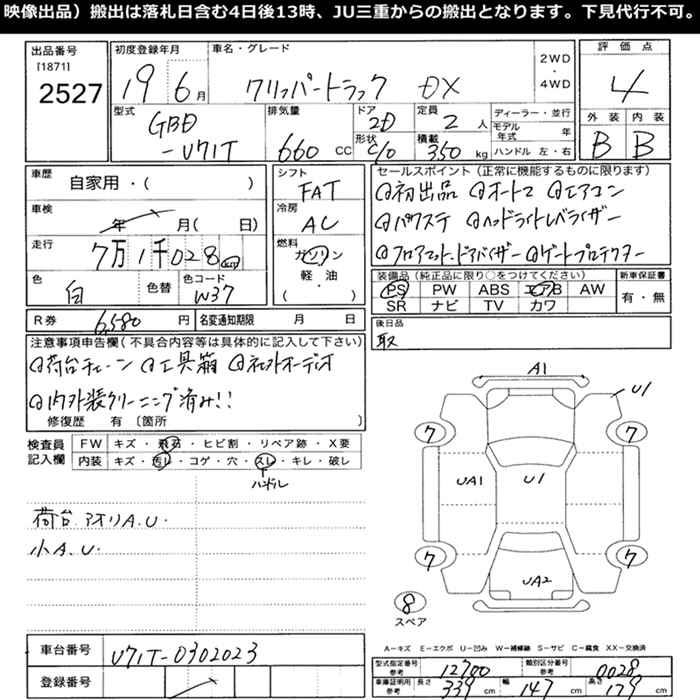 映像出品）搬出は落札日含む4日後13時、JU三重からの搬出となります。下見代行不可。
出品番号
[1871]
2527
初度登録年月
19 6 月
車名・グレード
クリッパートラック DX
2WD
・
4WD
評価点
4
型式
GBD
-U71T
排気量
660 CC
ドア
2D
形状
C/O
定員
2 人
積載
350 kg
ディーラー・並行
モデル年式 年
ハンドル 左・右
外装 内装
B B
車歴
自家用・( )
車検
年 月( 日)
走行
7万1千028 km
色
白
色替
色コード
W37
シフト
FAT
冷房
AC
燃料
ガソリン
軽・油
( )
セールスポイント(正常に機能するものに限ります)
初出品 オートマ エアコン
パワステ ヘッドライトレベライザー
フロアマット、ドアバイザー ゲートプロテクター
装備品(純正品に限り○をつけてください)
PS PW ABS エアB AW
SR ナビ TV カワ
新車保証書
有・無
R券 6,580 円
名変通知期限 月 日
後日品
取
注意事項申告欄(不具合内容等は具体的に記入して下さい)
荷台チェーン 工具箱 社外オーディオ
内外装クリーニング済み!!
修復歴 有〔箇所 〕
検査員
記入欄
FW キズ・飛石・ヒビ割・リペア跡・X要
内装 キズ・汚レ・コゲ・穴・スレ・キレ・破レ
ハンドル
荷台.アオリA.U.
小A.U.
A1
U1
7
7
UA1
U1
7
7
UA2
8
スペア
A―キズ E―エクボ U―凹み W―補修跡 S―サビ C―腐食 XX―交換済
車台番号
U71T-0302023
登録番号
型式指定番号
参考
12700
類別区分番号
参考
0028
車庫証明用
参考
長さ 339 cm
幅 147 cm
高さ 179 cm